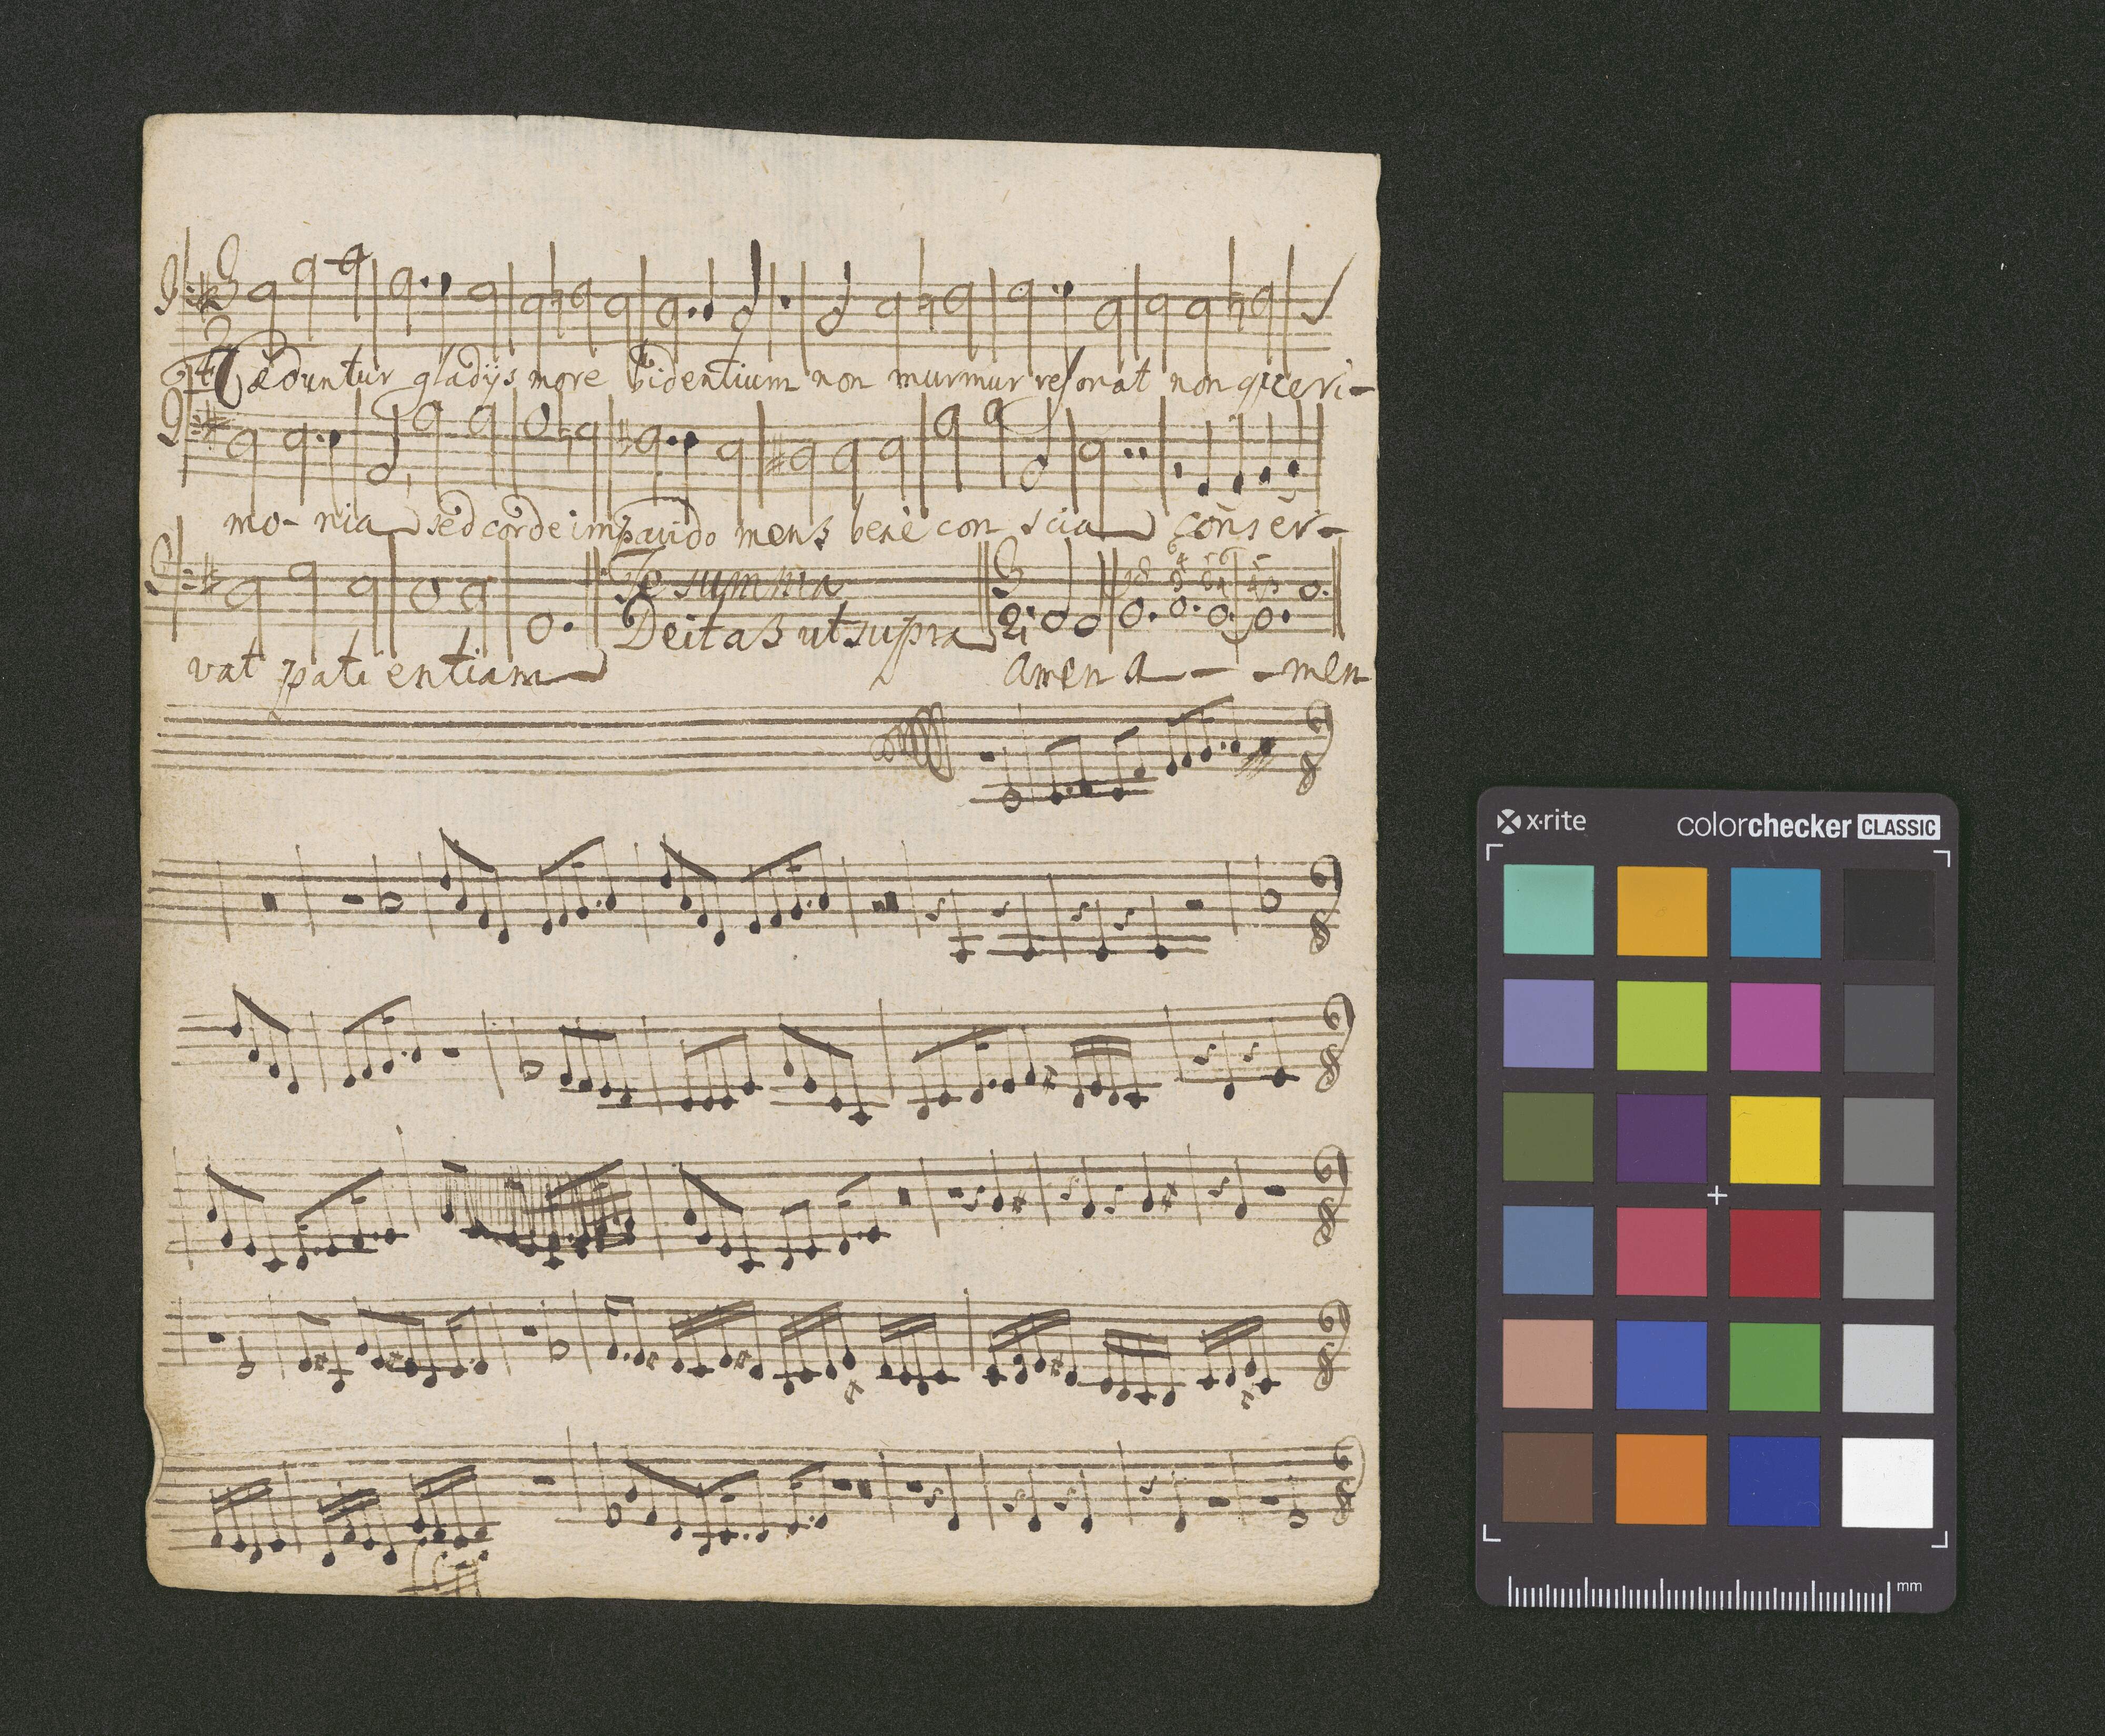 Cæduntur gladijs more bidentium non murmur resonat non queri-
mo- nia sed corde impavido mens bene con scia conser-
vat pati entiam
Te summa
Deitas ut supra
amen a - - men
x·rite
colorchecker CLASSIC
mm